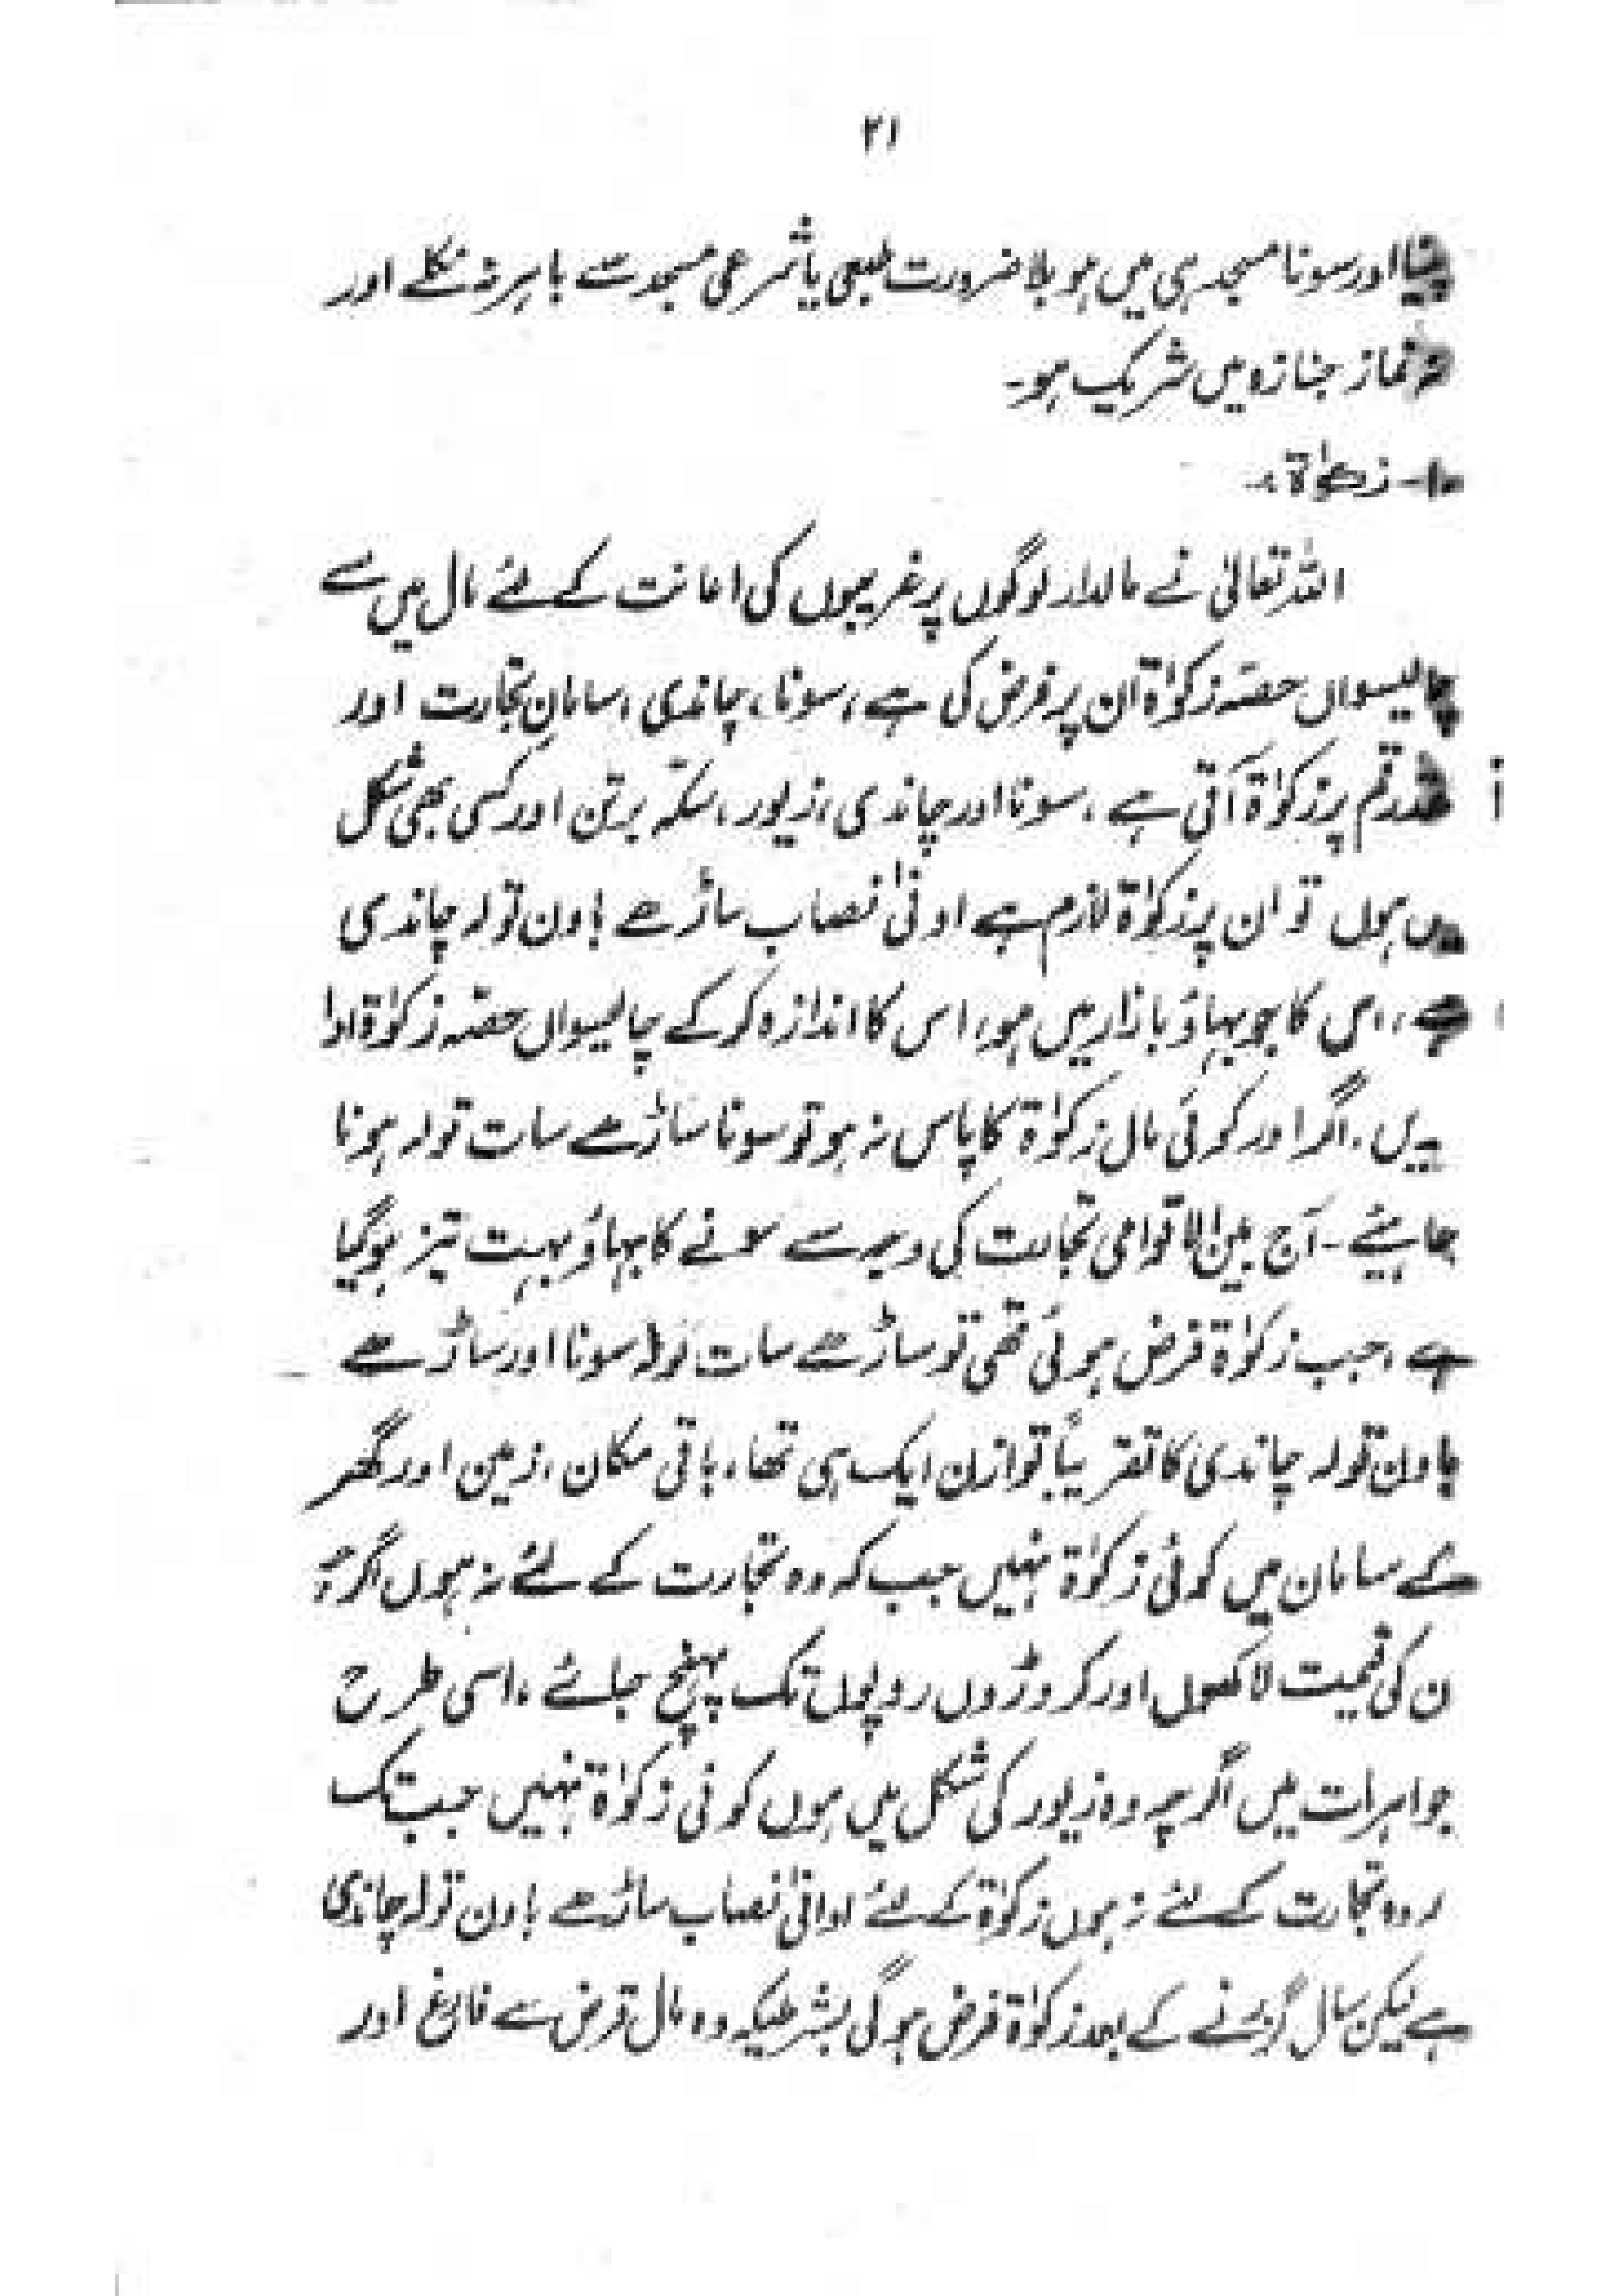 ۲۱
پینا اور سونا مسجد ہی میں ہو بلا ضرورت طبعی یا شرعی مسجد سے باہر نہ نکلے اور
نہ نماز جنازہ میں شریک ہو۔
۱۰- زکوٰۃ:-
اللہ تعالیٰ نے مالدار لوگوں پر غریبوں کی اعانت کے لئے مال میں سے
چالیسواں حصہ زکوٰۃ ان پر فرض کی ہے، سونا، چاندی، سامانِ تجارت اور
نقد رقم پر زکوٰۃ آتی ہے، سونا اور چاندی، زیور، سکہ برتن اور کسی بھی شکل
میں ہوں تو ان پر زکوٰۃ لازم ہے ادنیٰ نصاب ساڑھے باون تولہ چاندی
ہے، اس کا جو بھاؤ بازار میں ہو، اس کا اندازہ کر کے چالیسواں حصہ زکوٰۃ ادا
اگر اور کوئی مال زکوٰۃ کا پاس نہ ہو تو سونا ساڑھے سات تولہ ہونا
چاہیئے۔ آج بین الاقوامی تجارت کی وجہ سے سونے کا بہاؤ بہت تیز ہو گیا
ہے، جب زکوٰۃ فرض ہوئی تھی تو ساڑھے سات تولہ سونا اور ساڑھے
باون تولہ چاندی کا تقریباً توازن ایک ہی تھا، باقی مکان، زمین اور گھر
کے سامان میں کوئی زکوٰۃ نہیں جب کہ وہ تجارت کے لئے نہ ہوں اگرچہ
ن کی قیمت لاکھوں اور کروڑوں روپوں تک پہنچ جائے، اسی طرح
جواہرات میں اگرچہ وہ زیور کی شکل میں ہوں کوئی زکوٰۃ نہیں جب تک
وہ تجارت کے لئے نہ ہوں زکوٰۃ کے لئے ادنیٰ نصاب ساڑھے باون تولہ چاندی
ہے لیکن سال گزرنے کے بعد زکوٰۃ فرض ہو گی بشرطیکہ وہ مال قرض سے فارغ اور